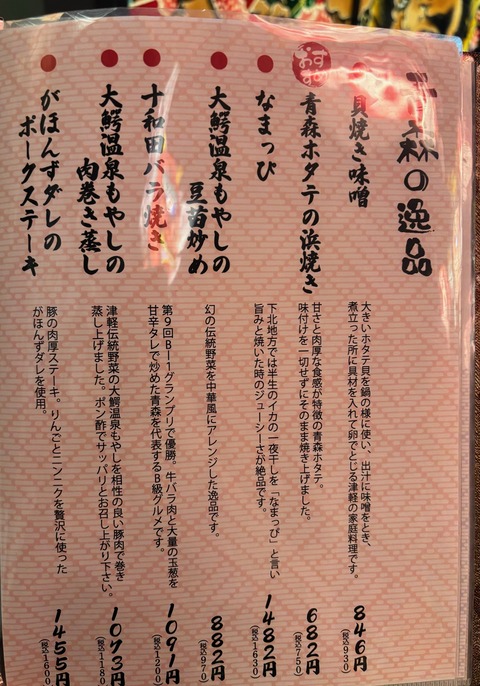 青森の逸品
貝焼き味噌
大きいホタテ貝を鍋の様に使い、出汁に味噌をとき、
煮立った所に具材を入れて卵でとじる津軽の家庭料理です。
846円
(税込930)
おすすめ
青森ホタテの浜焼き
甘さと肉厚な食感が特徴の青森ホタテ。
味付けを一切せずにそのまま焼き上げました。
682円
(税込750)
なまっぴ
下北地方では半生のイカの一夜干しを「なまっぴ」と言い
旨みと焼いた時のジューシーさが絶品です。
1482円
(税込1630)
大鰐温泉もやしの
豆苗炒め
幻の伝統野菜を中華風にアレンジした逸品です。
882円
(税込970)
十和田バラ焼き
第9回B－1グランプリで優勝。牛バラ肉と大量の玉葱を
甘辛タレで炒めた青森を代表するB級グルメです。
1091円
(税込1200)
大鰐温泉もやしの
肉巻き蒸し
津軽伝統野菜の大鰐温泉もやしを相性の良い豚肉で巻き
蒸し上げました。ポン酢でサッパリとお召し上がり下さい。
1073円
(税込1180)
がほんずダレの
ポークステーキ
豚の肉厚ステーキ。りんごとニンニクを贅沢に使った
がほんずダレを使用。
1455円
(税込1600)